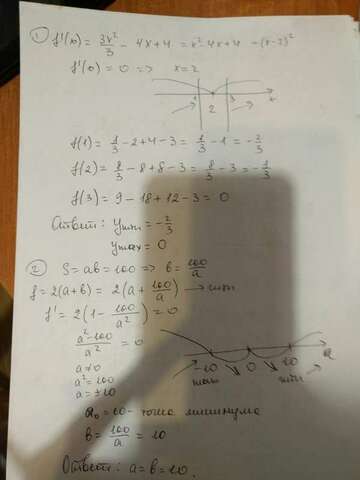 1) f'(x) = 3x²/3 - 4x + 4 = x² - 4x + 4 = (x-2)²
f'(0) = 0 => x = 2
1 2 3 x
f(1) = 1/3 - 2 + 4 - 3 = 1/3 - 1 = -2/3
f(2) = 8/3 - 8 + 8 - 3 = 8/3 - 3 = -1/3
f(3) = 9 - 18 + 12 - 3 = 0
Ответ: y min = -2/3
y max = 0
2) S = ab = 100 => b = 100/a
f = 2(a+b) = 2(a + 100/a) → min
f' = 2(1 - 100/a²) = 0
a² - 100/a² = 0
a ≠ 0
a² = 100
a = ±10
-10 0 10 a
max min
a₀ = 10 - точка минимума
b = 100/a = 10
Ответ: a = b = 10.